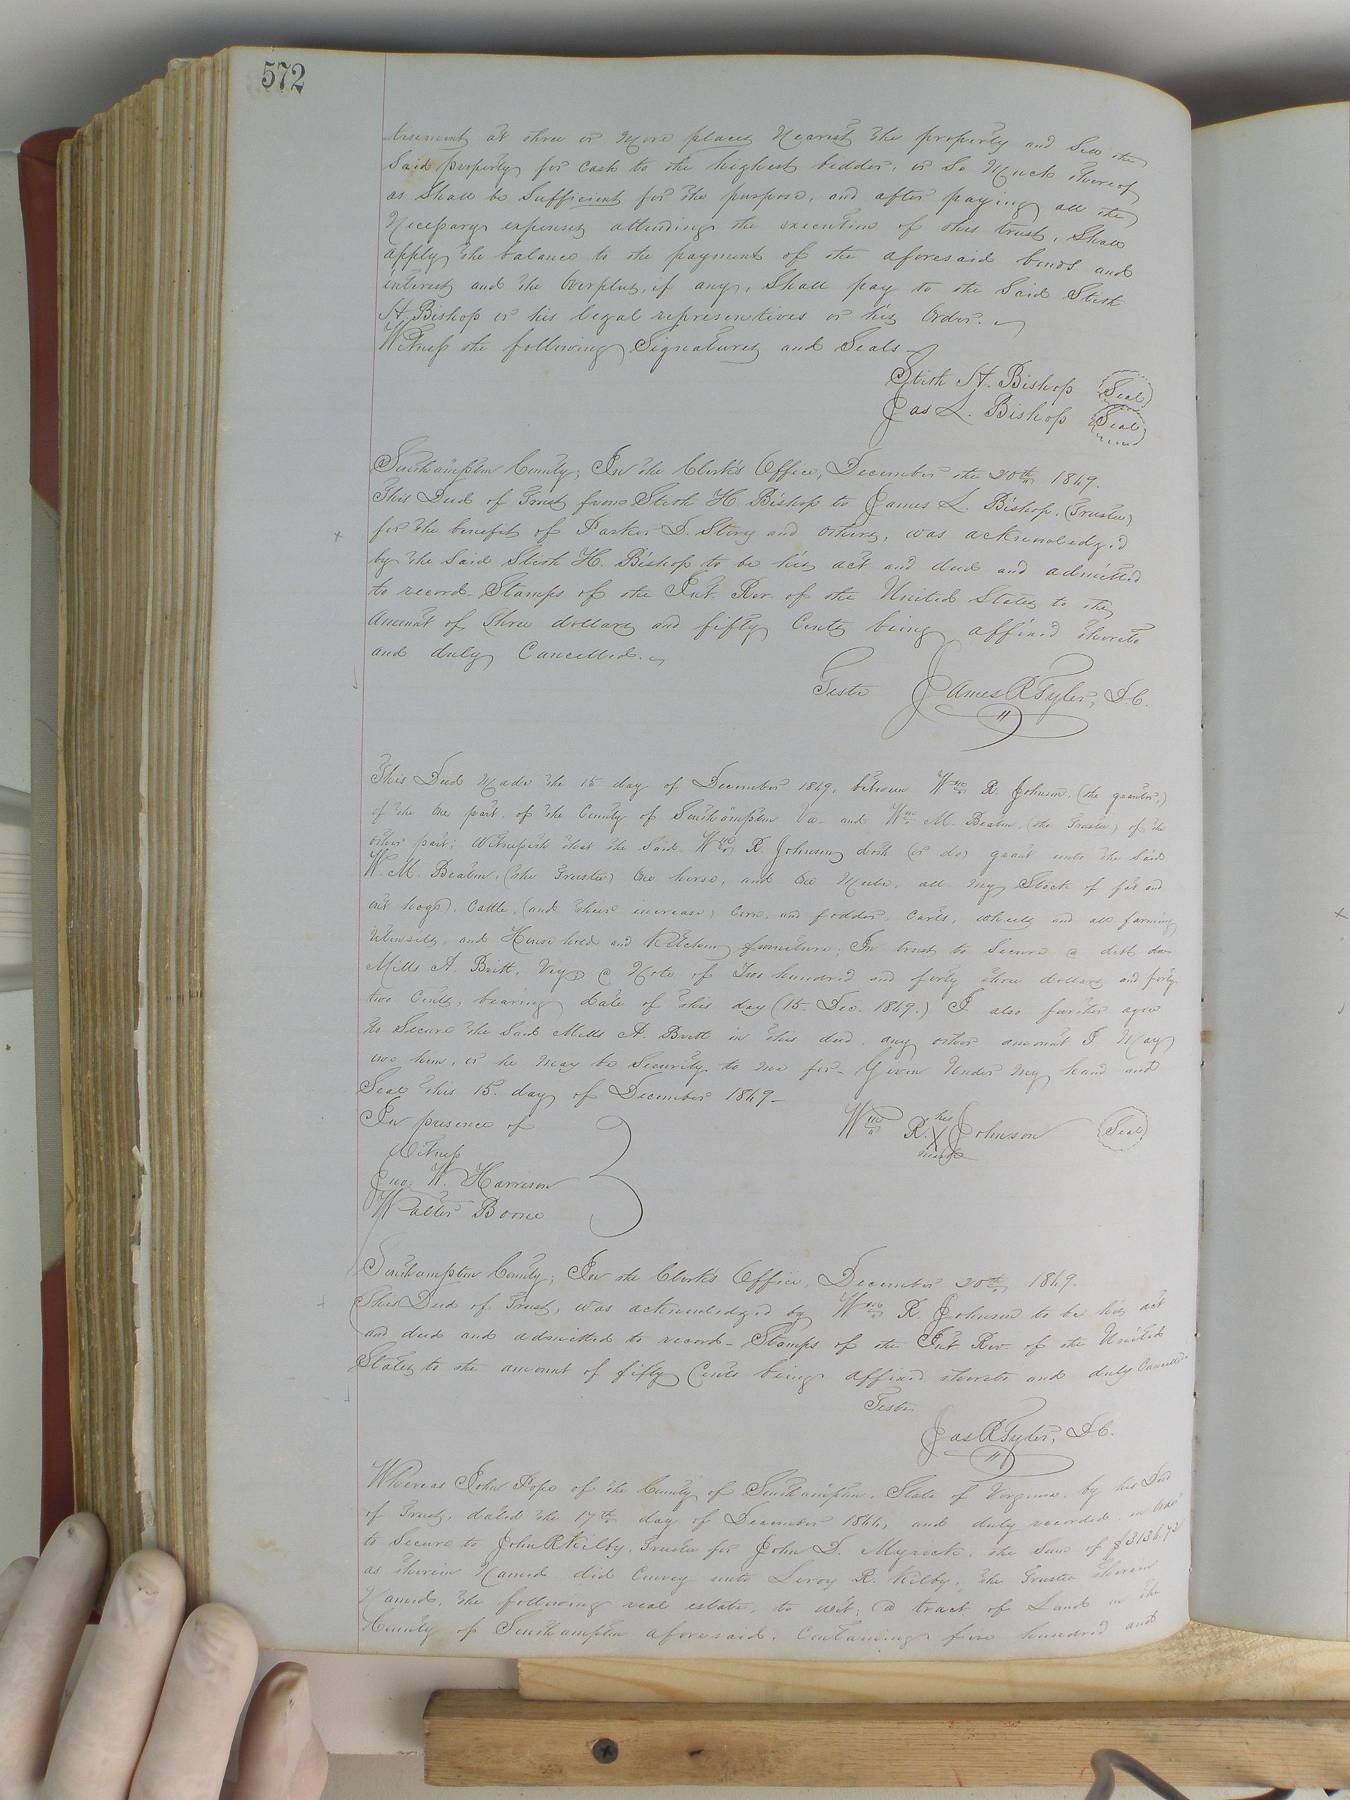 572
tisement at three or more places nearest the property and Sell the
Said property for cash to the highest bidder, or So Much thereof
as Shall be Sufficient for the purpose, and after paying all the
Necessary expenses attending the execution of this trust, Shall
apply the balance to the payment of the aforesaid bonds and
interest and the Overplus, if any, Shall pay to the Said Stith
H. Bishop or his legal representives or his Order.
Witness the following Signatures and Seals
Stith H. Bishop Seal
Jas L. Bishop Seal
Southampton County; In the Clerk's Office, December the 20th 1869.
This Deed of Trust from Stith H Bishop to James L. Bishop, (Trustee)
for the benefit of Parker D. and others, was acknowledged
by the Said Stith H. Bishop to be his act and deed and admitted
to record. Stamps of the Int. Rev. of the United States to the
Amount of Three dollars and fifty Cents being affixed thereto
and duly Cancelled.
Teste James R Tyler, D.C.
This Deed Made the 15 day of December 1869, between Wm R. Johnson, (the grantor,)
of the One part, of the County of Southampton Va. and Wm M. Beaton, (the Trustee) of the
other part; Witnesseth that the Said Wm R Johnson doth (or do) grant unto the Said
W. M. Beaton, (the Trustee) One horse, and One Mule, all My Stock of fat and
out hogs, Cattle, (and their increase) Corn, and fodder, Carts, wheels and all farming
Utensils, and Household and Kitchen furniture; In trust to Secure a debt due
Mills A. Britt, Viz; a Note of Two hundred and forty three dollars and forty
two Cents, bearing date of this day (15 Dec. 1869.) I also further agree
to Secure the Said Mills A. Britt in this deed, any other amount I May
owe him, or he may be Security to me for. Given Under My hand and
Seal this 15. day of December 1869
In presence of
Witness
Wm R. his X mark Johnson Seal
Jno. W. Harrison
Walter Boone
Southampton County; In the Clerk's Office, December 20th 1869.
This Deed of Trust, was acknowledged by Wm R. Johnson to be his act
and deed and admitted to record. Stamps of the Int Rev. of the United
States to the amount of fifty Cents being affixed thereto and duly Cancelled.
Teste
Jas R Tyler, D.C.
Whereas John Pope of the County of Southampton, State of Virginia, by his Deed
of Trust, dated the 17th day of December 1866, and duly recorded, in Order
to Secure to John R Kilby, Trustee for John D. Myrick, the Sum of $3136.72
as therein Named did Convey unto Leroy R. Kilby, the Trustee therein
Named, the following real estate, to wit; a tract of Land in the
County of Southampton aforesaid, Containing five hundred and